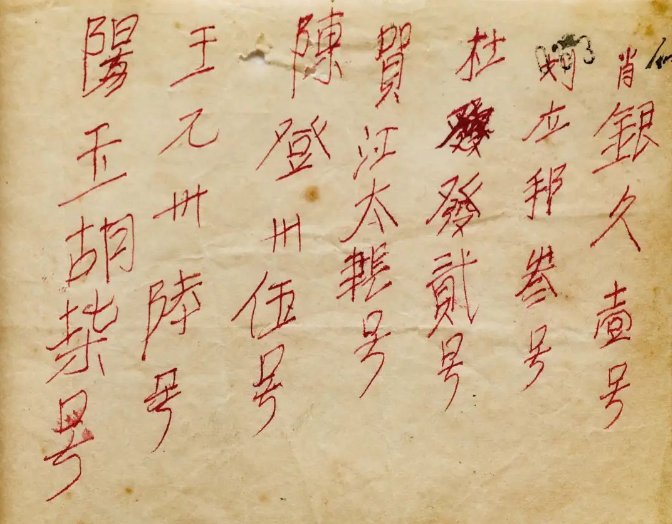 肖銀久壹号
何立邦叁号
杜發發貳号
賀江太号
陳登卅伍号
王元卅陸号
陽玉胡柒号